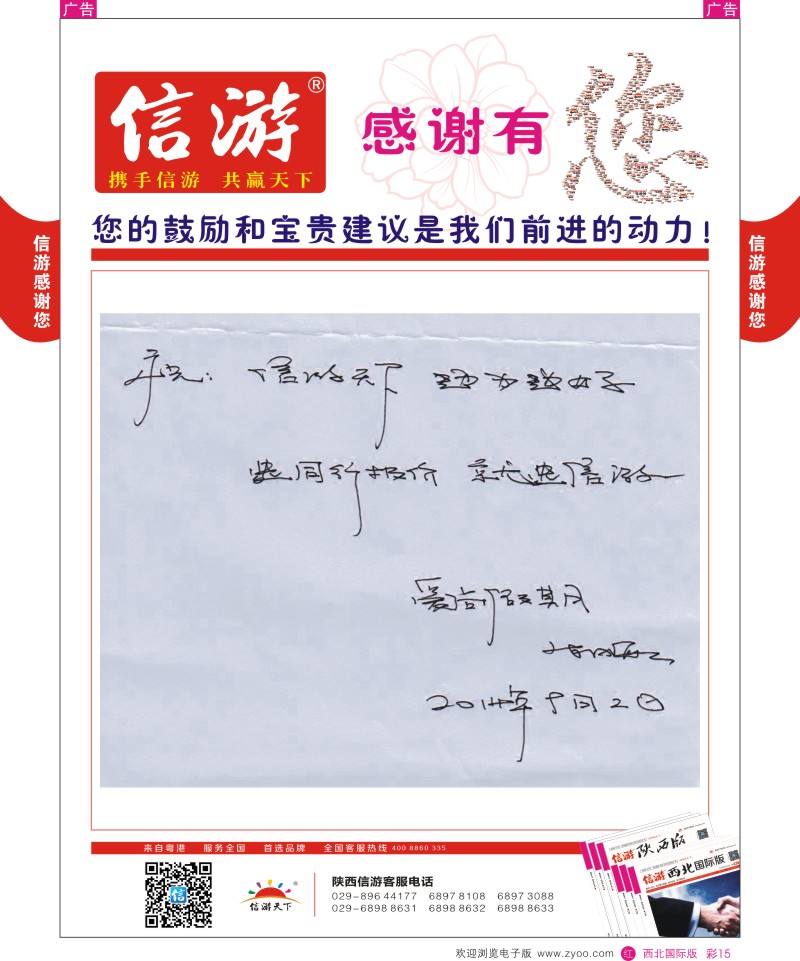 广告
广告
信游®
携手信游 共赢天下
感谢有
您
您的鼓励和宝贵建议是我们前进的动力！
信游感谢您
信游感谢您
祝: 信游天下 越办越好
同行报价 就选信游
假期
2014年9月2日
来自粤港 服务全国 首选品牌 全国客服热线 400 8860 335
信游
信游天下
陕西信游客服电话
029-896 44177 6897 8108 6897 3088
029-6898 8631 6898 8632 6898 8633
信游 陕西版
信游 西北国际版
欢迎浏览电子版 www.zyoo.com 红 西北国际版 彩15